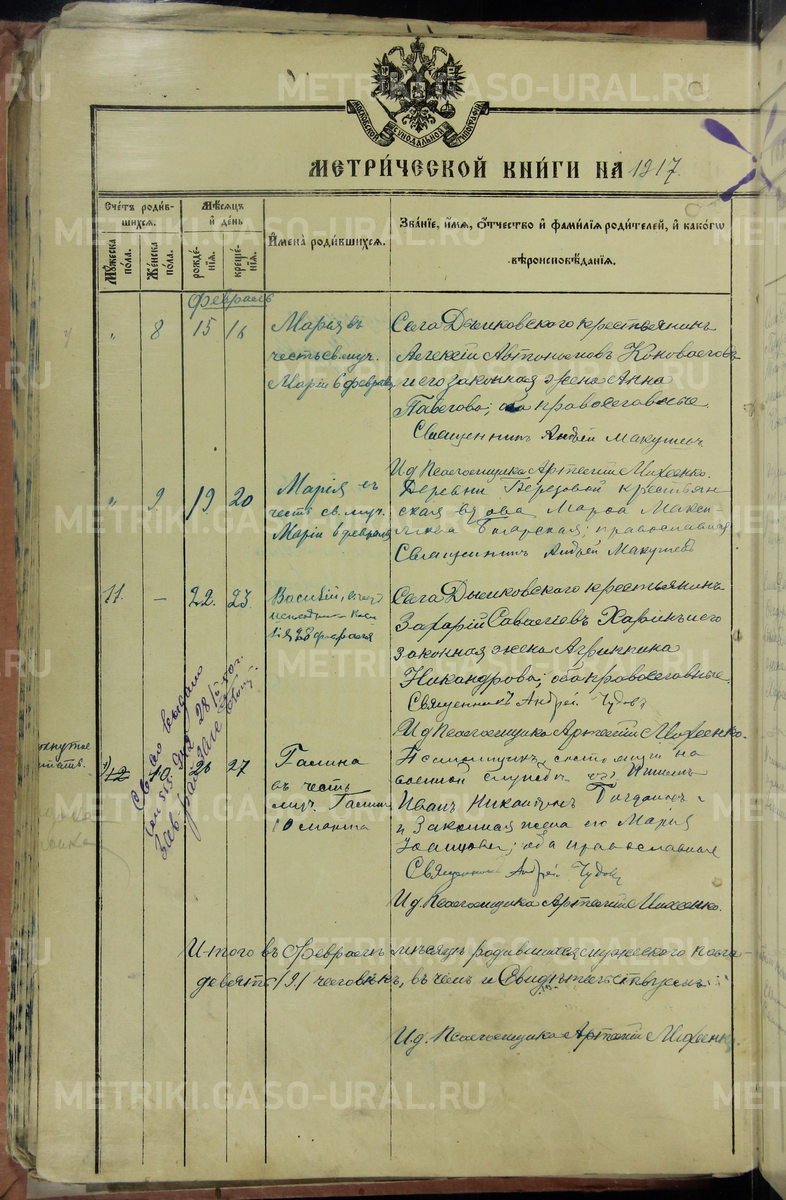 METRIKI.GASO-URAL.RU
МОСКОВСКОЙ СѴНОДАЛЬНОЙ ТИПОГРАФІИ
МЕТРИ́ЧЕСКОЙ КНИ́ГИ НА 1917.
Сче́тъ роди́вшихся.
Му́жеска по́ла.
Же́нска по́ла.
Мѣ́сяцъ и҆ де́нь
рожде́нїя.
креще́нїя.
И҆мена̀ роди́вшихся.
Зва́нїе, и҆́мя, ѻ҆́тчество и҆ фами́лїя роди́телей, и҆ како́гѡ
вѣроисповѣ́данїя.
Февраль
" 8 15 16
Марія въ
честь св. муч.
Маріи 6 февраля
Села Дымковскаго крестьянинъ
Алексѣй Автономовъ Коноваловъ
и его законная жена Анна
Павлова; оба православные.
Священникъ Андрей
И.д. Псаломщика Артемій Михеенко.
" 9 19 20
Марія въ
честь св. муч.
Маріи 6 февраля
Деревни Березовой крестьян-
ская вдова Марфа Макси-
мова православная
Священникъ Андрей
11. — 22. 23.
Василій, въ честь
исповѣдника Васи-
лія 28 февраля
Села Дымковскаго крестьянинъ
Захарій Савельевъ Харинъ и его
законная жена Агриппина
Никандрова; оба православные.
Священникъ Андрей Чудовъ
И.д. Псаломщика Артемій Михеенко.
12 10. 26 27
Галина
въ честь
муч. Галины
10 марта
Псаломщикъ состоящій на
военной службѣ
Иванъ
и законная жена его Марія
оба православные
Священникъ Андрей Чудовъ
И.д. Псаломщика Артемій Михеенко.
Итого въ Февралѣ мѣсяцѣ родившихся мужескаго пола
девять /9/ человѣкъ, въ чемъ и свидѣтельствуемъ:
И.д. Псаломщика Артемій Михеенко.